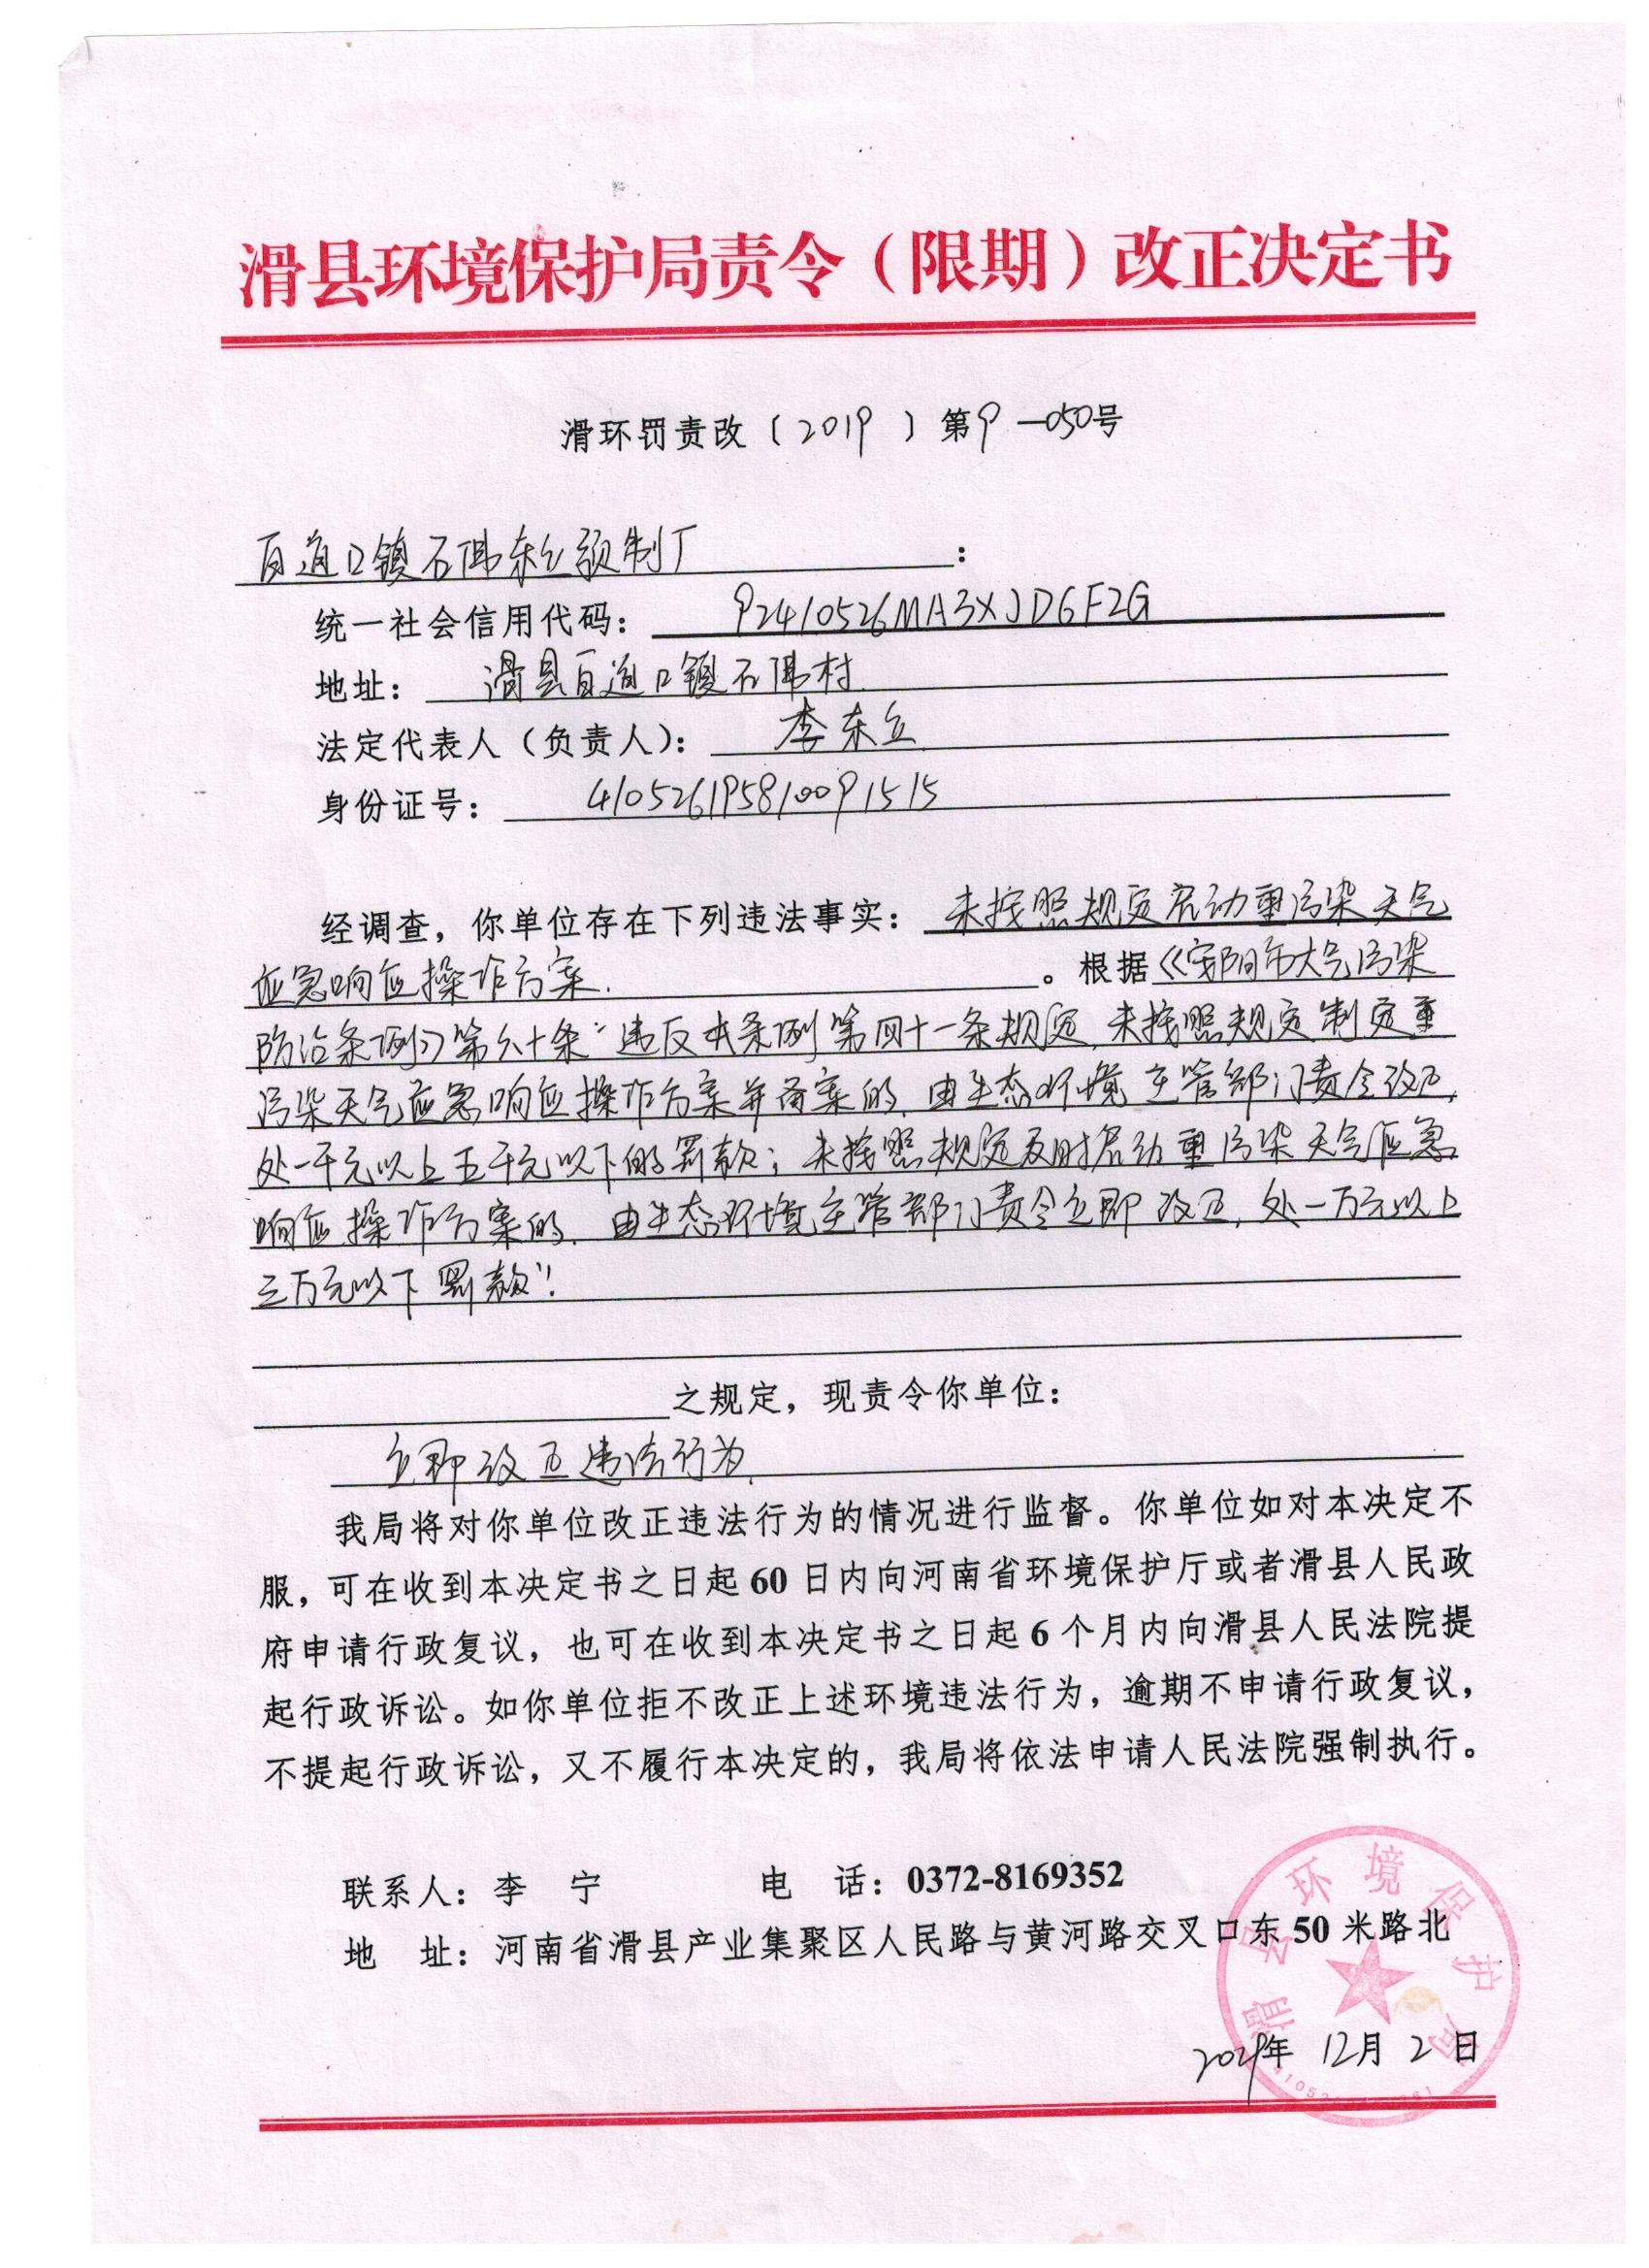 滑县环境保护局责令（限期）改正决定书
滑环罚责改〔2019〕第9-050号
百道口镇石佛东立预制厂：
统一社会信用代码：92410526MA3XJD6F2G
地址：滑县百道口镇石佛村
法定代表人（负责人）：李东立
身份证号：410526195810091515
经调查，你单位存在下列违法事实：未按照规定启动重污染天气
应急响应操作方案.。根据《安阳市大气污染
防治条例》第六十条“违反本条例第四十一条规定，未按照规定制定重
污染天气应急响应操作方案并备案的，由生态环境主管部门责令改正，
处一千元以上五千元以下的罚款；未按照规定及时启动重污染天气应急
响应操作方案的，由生态环境主管部门责令立即改正，处一万元以上
三万元以下罚款”.
之规定，现责令你单位：
立即改正违法行为.
我局将对你单位改正违法行为的情况进行监督。你单位如对本决定不
服，可在收到本决定书之日起60日内向河南省环境保护厅或者滑县人民政
府申请行政复议，也可在收到本决定书之日起6个月内向滑县人民法院提
起行政诉讼。如你单位拒不改正上述环境违法行为，逾期不申请行政复议，
不提起行政诉讼，又不履行本决定的，我局将依法申请人民法院强制执行。
联系人：李 宁 电 话：0372-8169352
地 址：河南省滑县产业集聚区人民路与黄河路交叉口东50米路北
滑县环境保护局
年12月2日